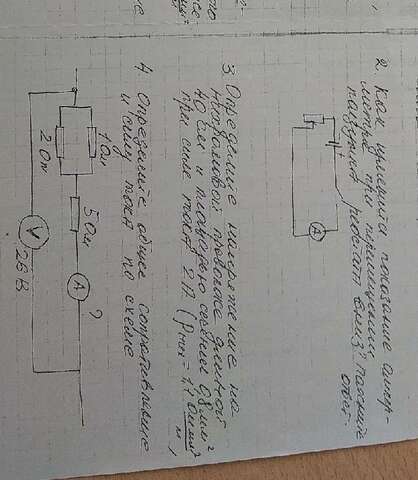 2. Как изменится показание ампер-
метра при перемещении
ползунков реостата вниз? Поясните
ответ.
A
3. Определите напряжение на
нихромовой проволоке длиной
сечения 0,8 мм²
при силе тока 2 А. (ρних = 1,1 Ом мм²
м
4 Определите общее сопротивление
и силу тока по схеме
1 Ом
2 Ом
5 Ом
A
?
V
26 В